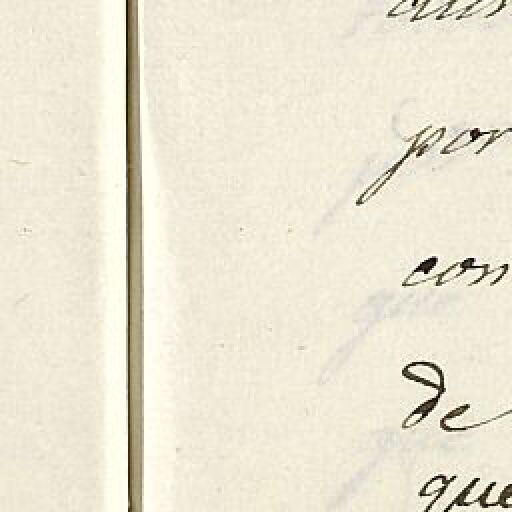 por
con
de
que